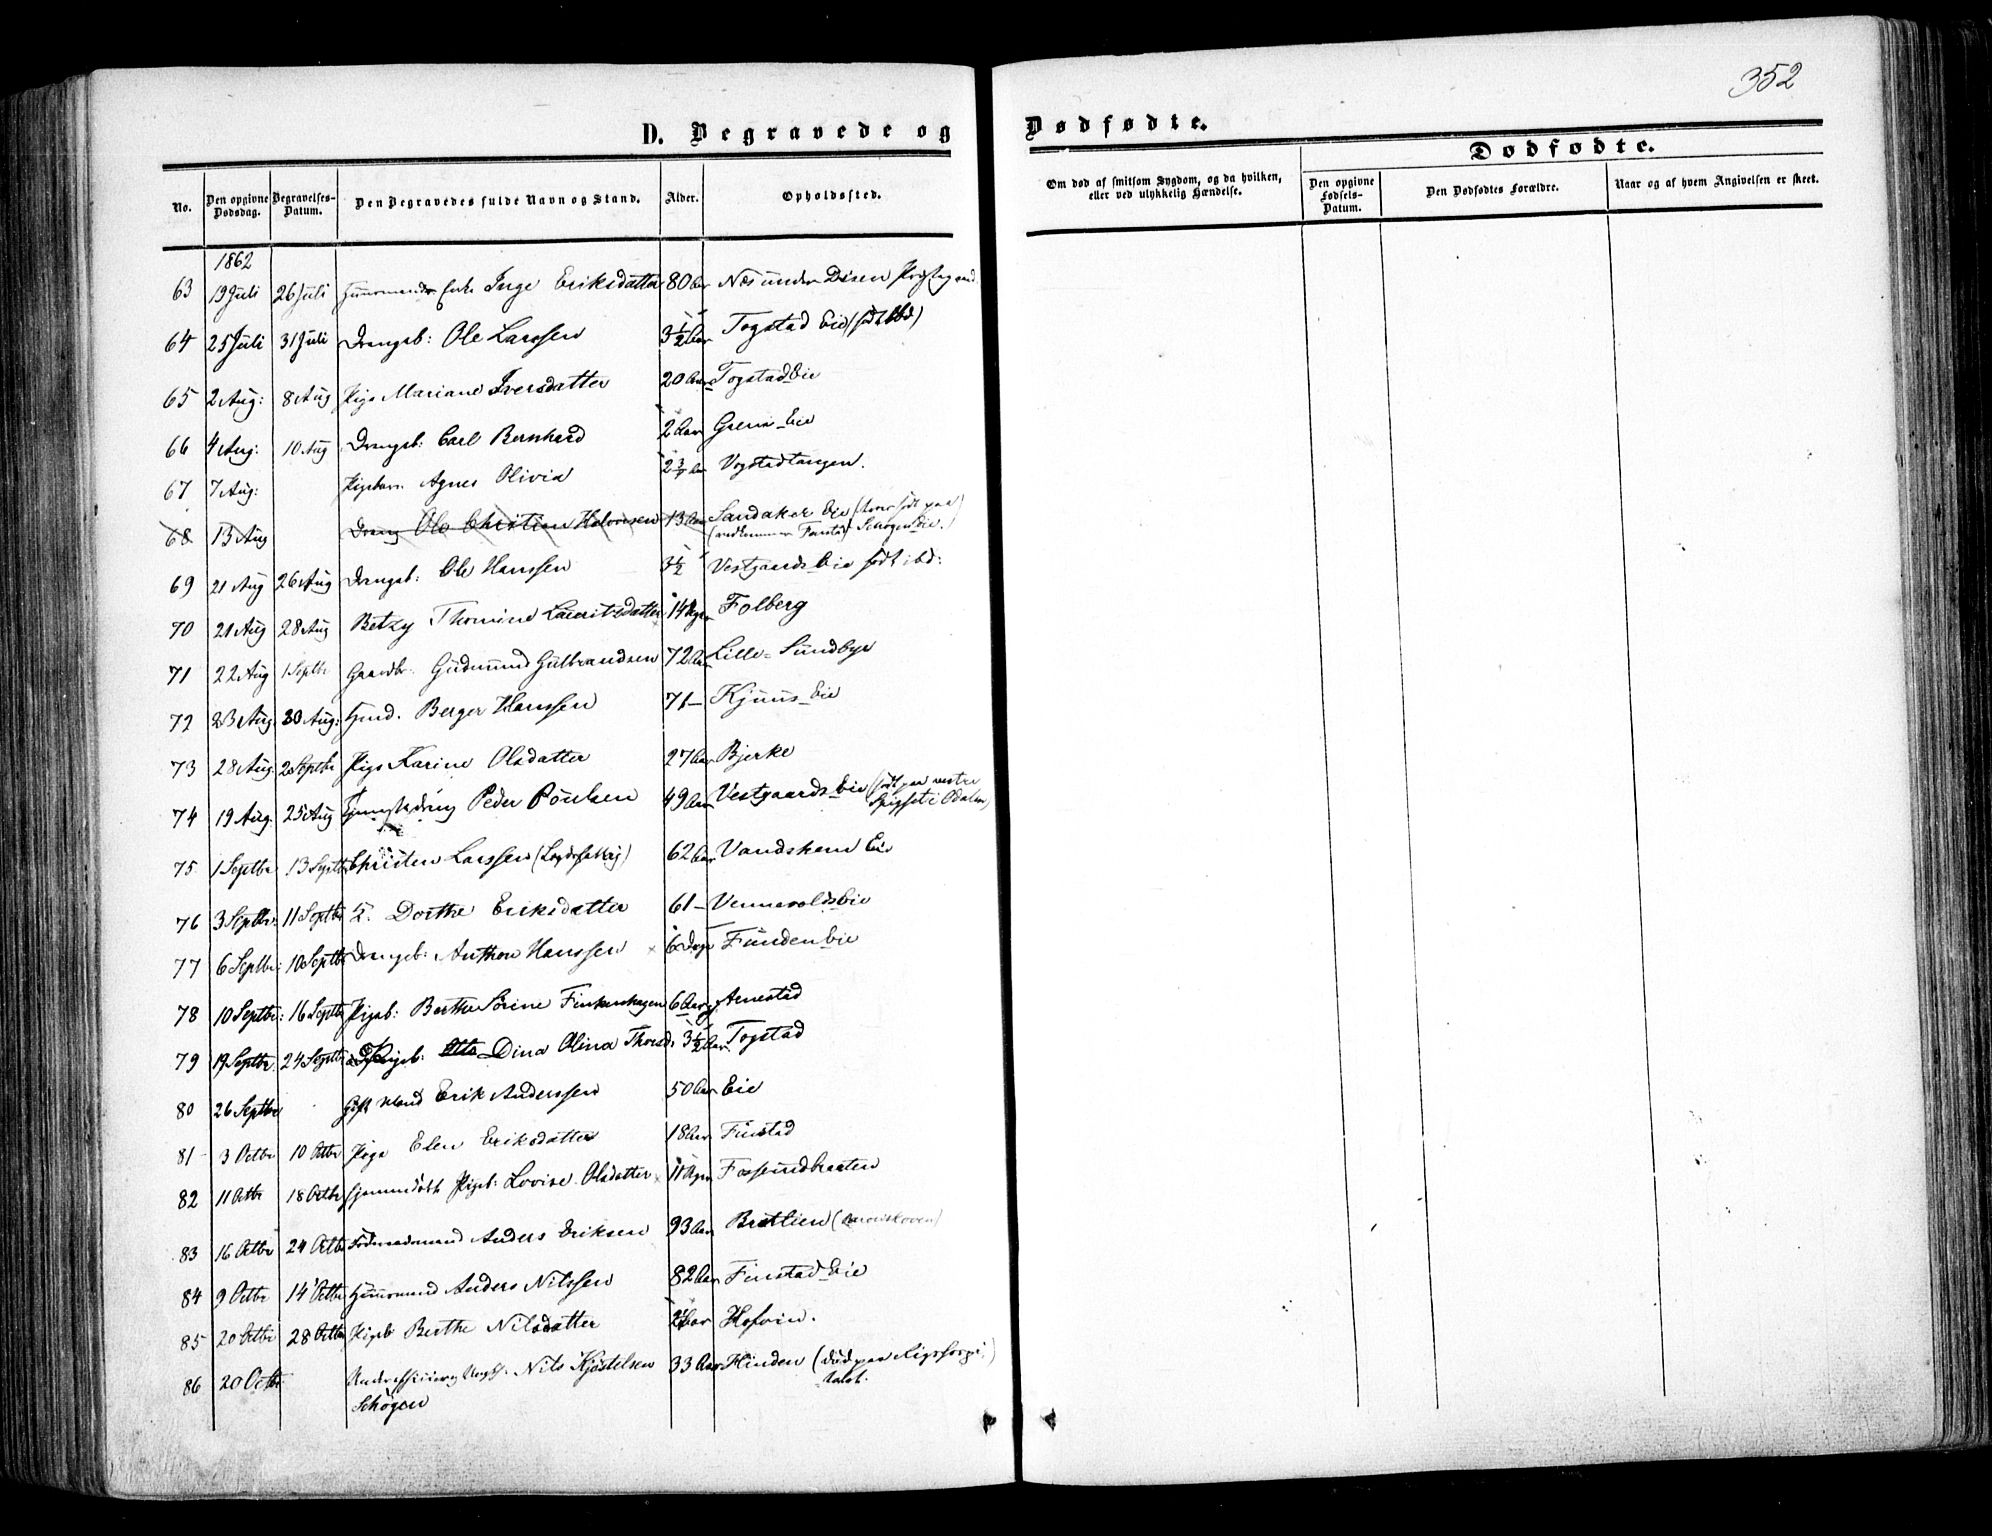 352
D. Begravede og Dødfødte.
Dødfødte.
No. Den opgivne Dødsdag. Begravelses-Datum. Den Begravedes fulde Navn og Stand. Alder. Opholdssted.
Om død af smitsom Sygdom, og da hvilken, eller ved ulykkelig Hændelse. Den opgivne Fødsels-Datum. Den Dødfødtes Forældre. Naar og af hvem Angivelsen er skeet.
1862
63 19 Juli 26 Juli Enke Inge Eriksdatter 80 Aar Næs under Disen
64 25 Juli 31 Juli Drengeb: Ole Larssen 3 1/2 Aar Togstad Eie (født ibd)
65 2 Aug: 8 Aug Pige Mariane Iversdatter 20 Aar Togstad Eie
66 4 Aug: 10 Aug Drengeb: Carl Bernhard 2 Aar Grenie Eie
67 7 Aug: Pigebarn Agnes Olivia 2 Aar Vogstadtangen.
68 13 Aug Dreng Ole Christian Halvorsen 13 Aar Sandaker Eie
69 21 Aug 26 Aug Drengeb: Ole Hanssen 3 1/2 Vestgaards Eie født ibd:
70 21 Aug 28 Aug Betzy Thomine Lauritzdatter 14 Uger Folberg
71 22 Aug 1 Septbr Gaardbr. Gudmund Gulbrandsen 72 Aar Lille-Sundbye
72 23 Aug. 30 Aug: Berger Hanssen 71 – Kjuus Eie
73 28 Aug. 2 Septbr Pige Karine Olsdatter 27 Aar Bjerke
74 19 Aug. 25 Aug Peder Poulsen 49 Aar Vestgaards Eie (født paa vestre i Odalen)
75 1 Septbr 13 Septbr Christen Larssen 62 Aar Vandskem Eie
76 3 Septbr: 11 Septbr Dorthe Eriksdatter 61 – Vennevolds Eie
77 6 Septbr: 10 Septbr Drengeb: Anthon Hanssen 6 Dage Funden Eie
78 10 Septbr: 16 Septbr Pigeb: Berthe Sørine Finkenhagen 6 Aar Arnestad
79 19 Septbr. 24 Septbr Pigeb: Dina Olina Thorsd. 3 1/2 Aar Togstad
80 26 Septbr Gift Mand Erik Anderssen 50 Aar Eie
81 3 Octbr 10 Octbr Pige Elen Eriksdatter 18 Aar Finstad
82 11 Octbr 18 Octbr hjemmedøbt Pigeb: Lovise Olsdatter 11 Uger Fossundbraaten
83 16 Octbr 24 Octbr Føderaadsmand Anders Eriksen 93 Aar
84 9 Octbr 14 Octbr Huusmand Anders Nilssen 82 Aar Finstad Eie
85 20 Octbr 28 Octbr Pigeb Berthe Nilsdatter Aar Hofvin.
86 20 Octbr. Nils Kjøstelsen 33 Aar Hinden (død paa Rigshospi-
Schøgen talet.